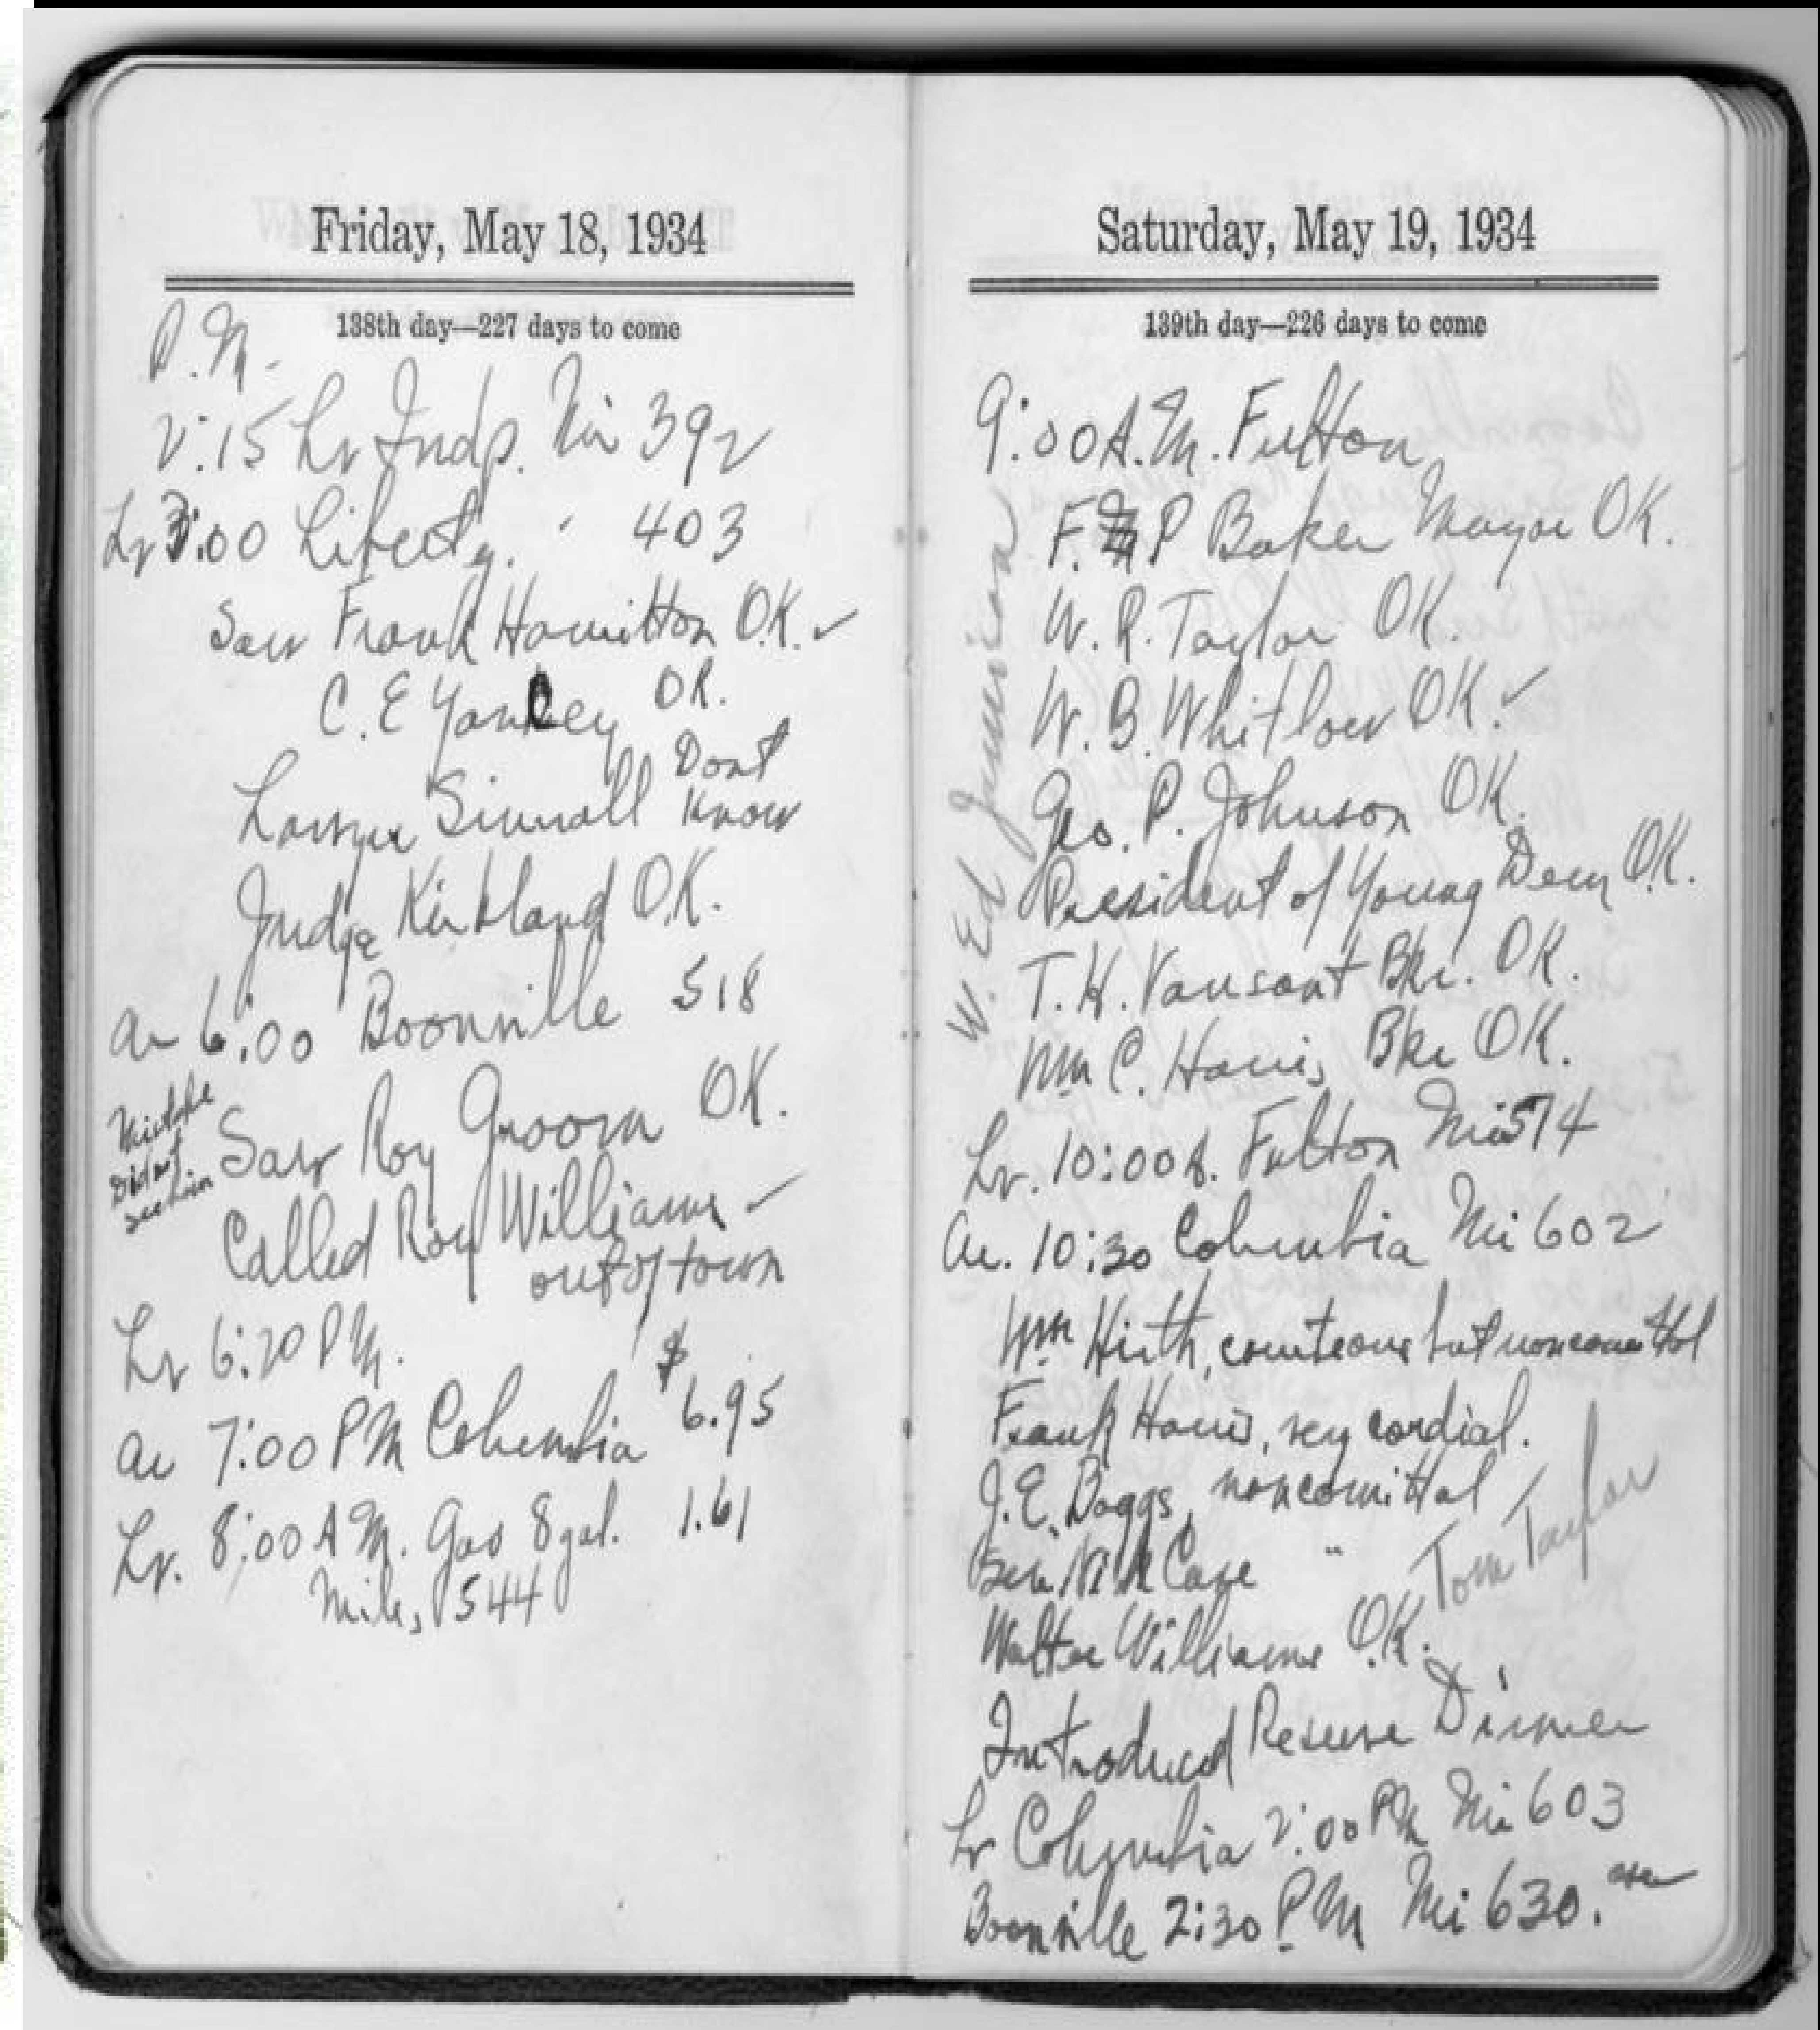 Friday, May 18, 1934
138th day—227 days to come
P.M.
2:15 Lv Indp. Mi 392
Lv 3:00 Liberty. " 403
Saw Frank Hamilton OK. ✓
C. E Yancey OK.
Lawyer Simrall Dont Know
Judge Kirkland O.K.
Ar 6:00 Boonville 518
Mistake
Did not
see him
Saw Roy Groom OK.
Called Roy Williams ✓
out of town
Lv 6:20 P.M.
Ar 7:00 PM Columbia $6.95
Lv. 8:00 A.M. Gas 8 gal. 1.61
Miles 544
Saturday, May 19, 1934
139th day—226 days to come
W. Ed Jamison
9:00 A.M. Fulton
F. P Baker Mayor OK.
W. R. Taylor OK.
W. B. Whitlow OK. ✓
Geo. P. Johnson OK.
President of Young Dem O.K.
T. H. Vansant Bkr. OK.
Wm C. Harris Bkr OK.
Lv. 10:00 A. Fulton Mi 574
Ar. 10:30 Columbia Mi 602
Wm Hirth, courteous but noncomittal
Frank Harris, very cordial.
J. E. Boggs, noncomittal
Cave "
Tom Taylor
Walter Williams O.K.
Introduced Reserve Dinner
Lv Columbia 2:00 PM Mi 603
Boonville 2:30 P.M Mi 630.